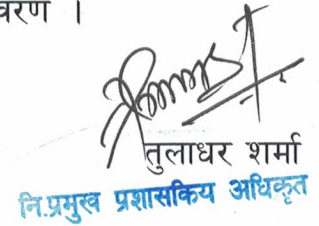 वरण ।
तुलाधर शर्मा
नि.प्रमुख प्रशासकिय अधिकृत